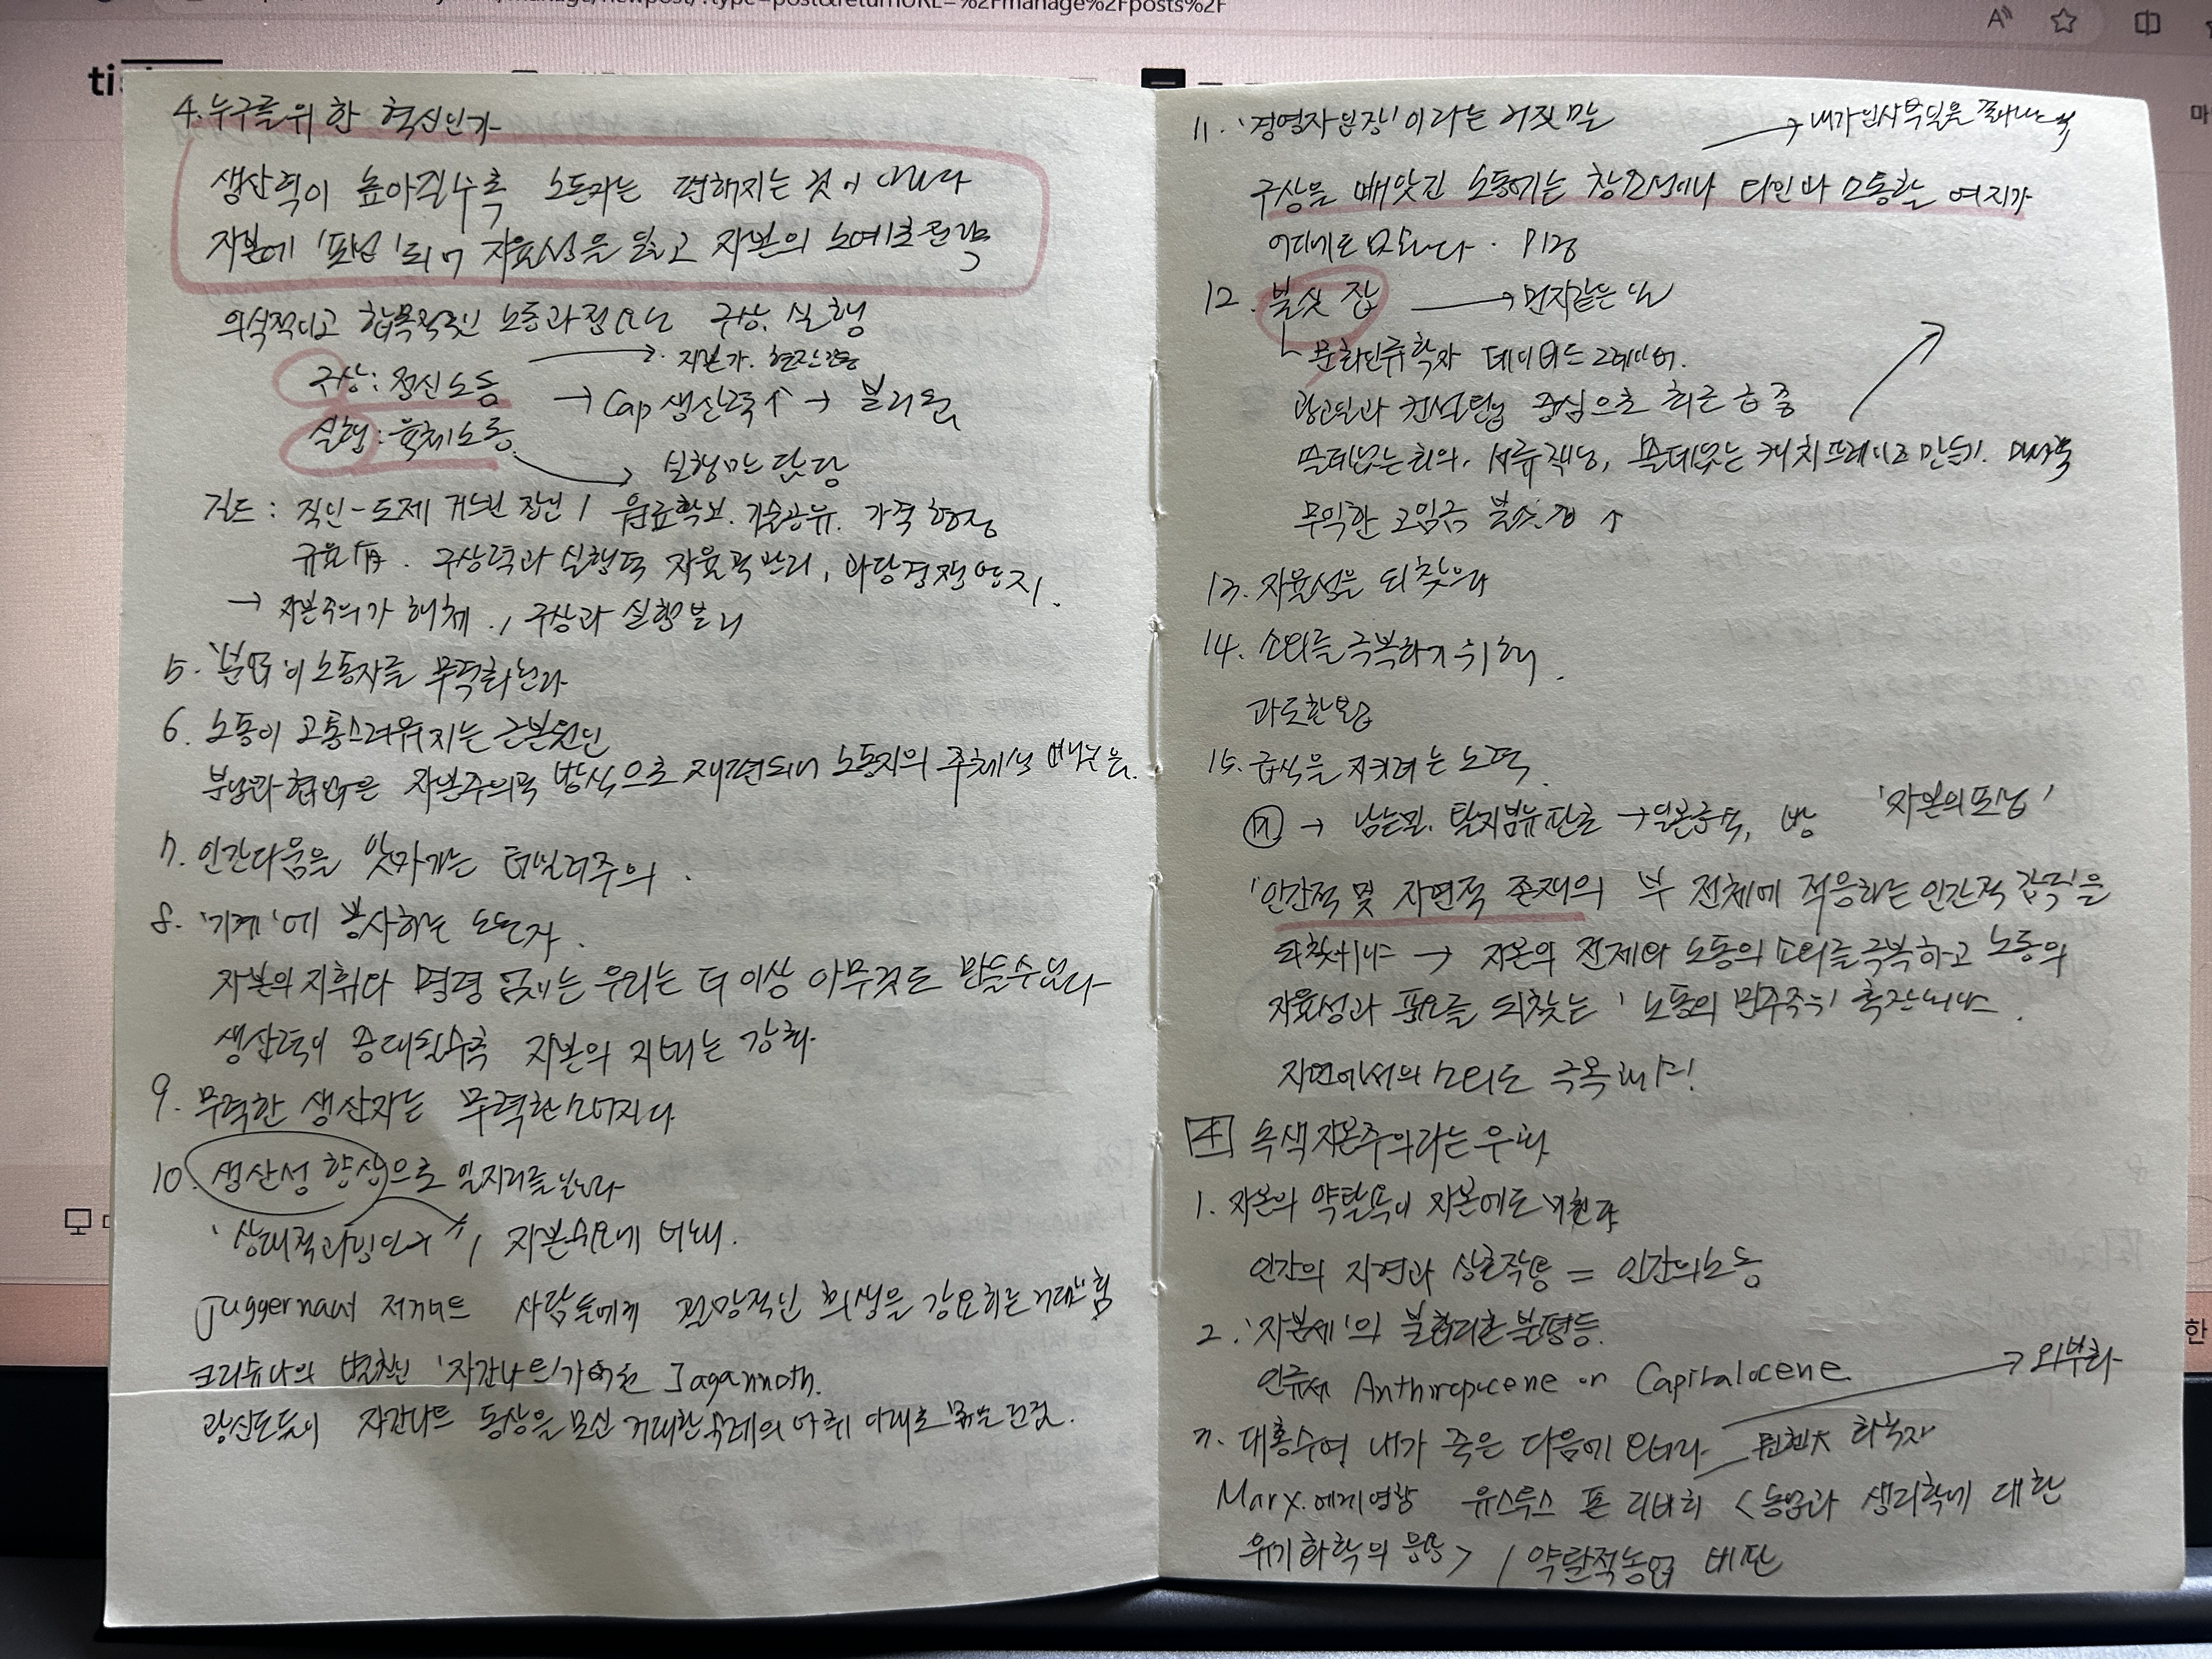 manage/newpost/?type=post&returnURL=%2Fmanage%2Fposts%2F
4. 누구를 위한 혁신인가
생산력이 높아질수록 노동자는 편해지는 것이 아니라
자본에 '포섭'되어 자율성을 잃고 자본의 노예로 전락
의식적이고 합목적적인 노동과정으로 구상. 실행
구상 : 정신노동 → 자본가. 현장감독
→ Cap 생산력↑ → 분리됨
실행 : 육체노동 → 실행만 담당
길드 : 직인-도제 거느린 장인 / 원료확보. 기술공유. 가격형성
규율 有. 구상력과 실행력 자율적관리, 과당경쟁방지.
→ 자본주의가 해체. , 구상과 실행분리
5. '분업'이 노동자를 무력화한다
6. 노동이 고통스러워지는 근본원인
분업과 협업은 자본주의적 방식으로 재편되어 노동자의 주체성 빼앗음.
7. 인간다움을 앗아가는 테일러주의.
8. '기계'에 봉사하는 노동자.
자본의 지휘나 명령 없이는 우리는 더 이상 아무것도 만들수없다
생산력이 증대될수록 자본의 지배는 강화
9. 무력한 생산자는 무력한 소비자다
10. 생산성 향상으로 일자리를 잃는다
'상대적과잉인구'↑ / 자본수요에 비해.
juggernaut 저거너트 사람들에게 절망적인 희생을 강요하는 거대한 힘
크리슈나의 별칭인 '자간나트'가 어원 Jagannath.
광신도들이 자간나트 동상을 모신 거대한 수레의 바퀴 아래로
11. '경영자 입장'이라는 거짓말
구상을 빼앗긴 노동에는 창의성이나 타인과 소통할 여지가
어디에도 없다. P128
12. 불싯 잡
문화인류학자 데이비드 그레이버.
광고업과 컨설팅업 중심으로 최근 급증
쓸데없는 회의, 서류작성, 쓸데없는 캐치프레이즈 만들기.
무익한 고임금 불싯.잡 ↑
13. 자율성을 되찾으라
14. 소외를 극복하기 위해.
과도한
15. 급식을 지키려는 노력.
'자본의 포섭'
'인간적 및 자연적 존재의 부 전체에 적응하는 인간적 감각'을
되찾아야 → 자본의 전제와 노동의 소외를 극복하고 노동의
자율성과 풍요를 되찾는 '노동의 민주주의' 확장해야.
자연에서의 소외도 극복해야!
4 녹색자본주의라는 우화
1. 자본의 약탈욕이 자본에도
인간의 자연과 상호작용 = 인간의노동
2. '자본세'의 불합리한 불평등.
인류세 Anthropocene on Capitalocene
3. 대홍수여 내가 죽은 다음에 오너라 → 외부화
화학자
Marx.에게 영향 유스투스 폰 리비히 <농업과 생리학에 대한
유기화학의 응용> / 약탈적농업 비판